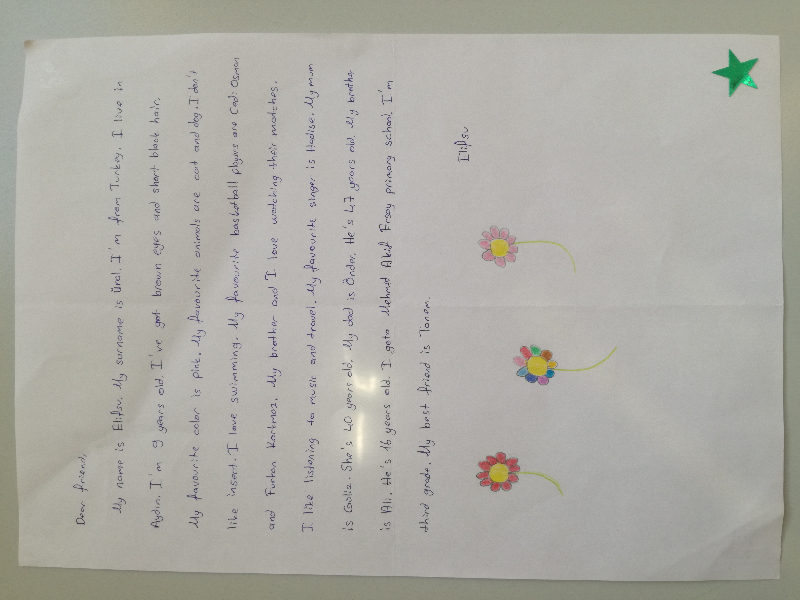 Dear friend,
My name is Elifsu. My surname is Ünal. I'm from Turkey. I live in
Aydın. I'm 9 years old. I've got brown eyes and short black hair.
My favourite color is pink. My favourite animals are cat and dog. I don't
like insert. I love swimming. My favourite basketball players are Cedi Osman
and Furkan Korkmaz. My brother and I love watching their matches.
I like listening to music and travel. My favourite singer is Hadise. My mum
is She's 40 years old. My dad is Önder. He's 47 years old. My brother
is Ali. He's 16 years old. I goto Mehmet Akif Ersoy primary school. I'm
third grade. My best friend is
Elifsu